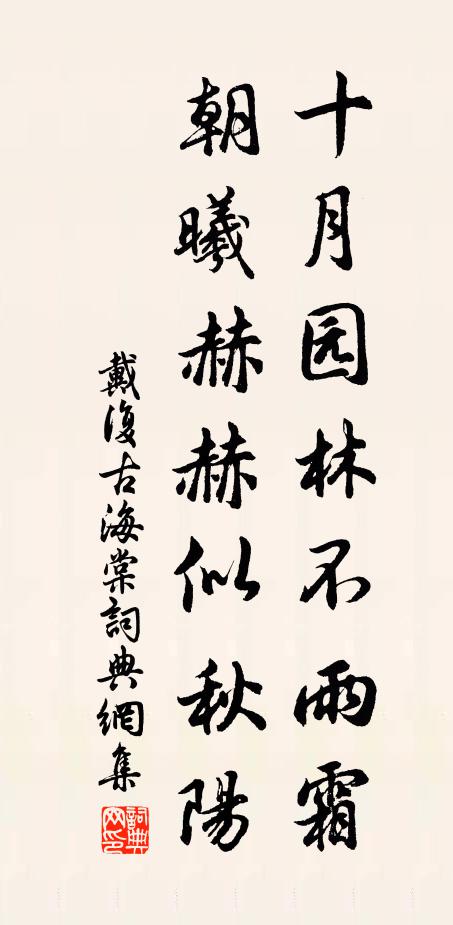 十月园林不雨霜
朝曦赫赫似秋陽
戴復古海棠詞典網集
詞典网印